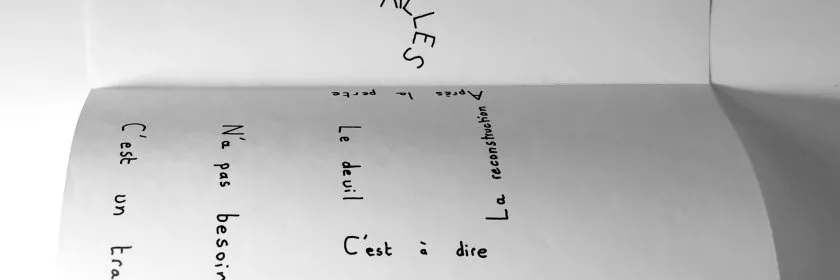 LES
Après la perte
La reconstruction
C'est à dire
Le deuil
N'a pas besoin
C'est un tra